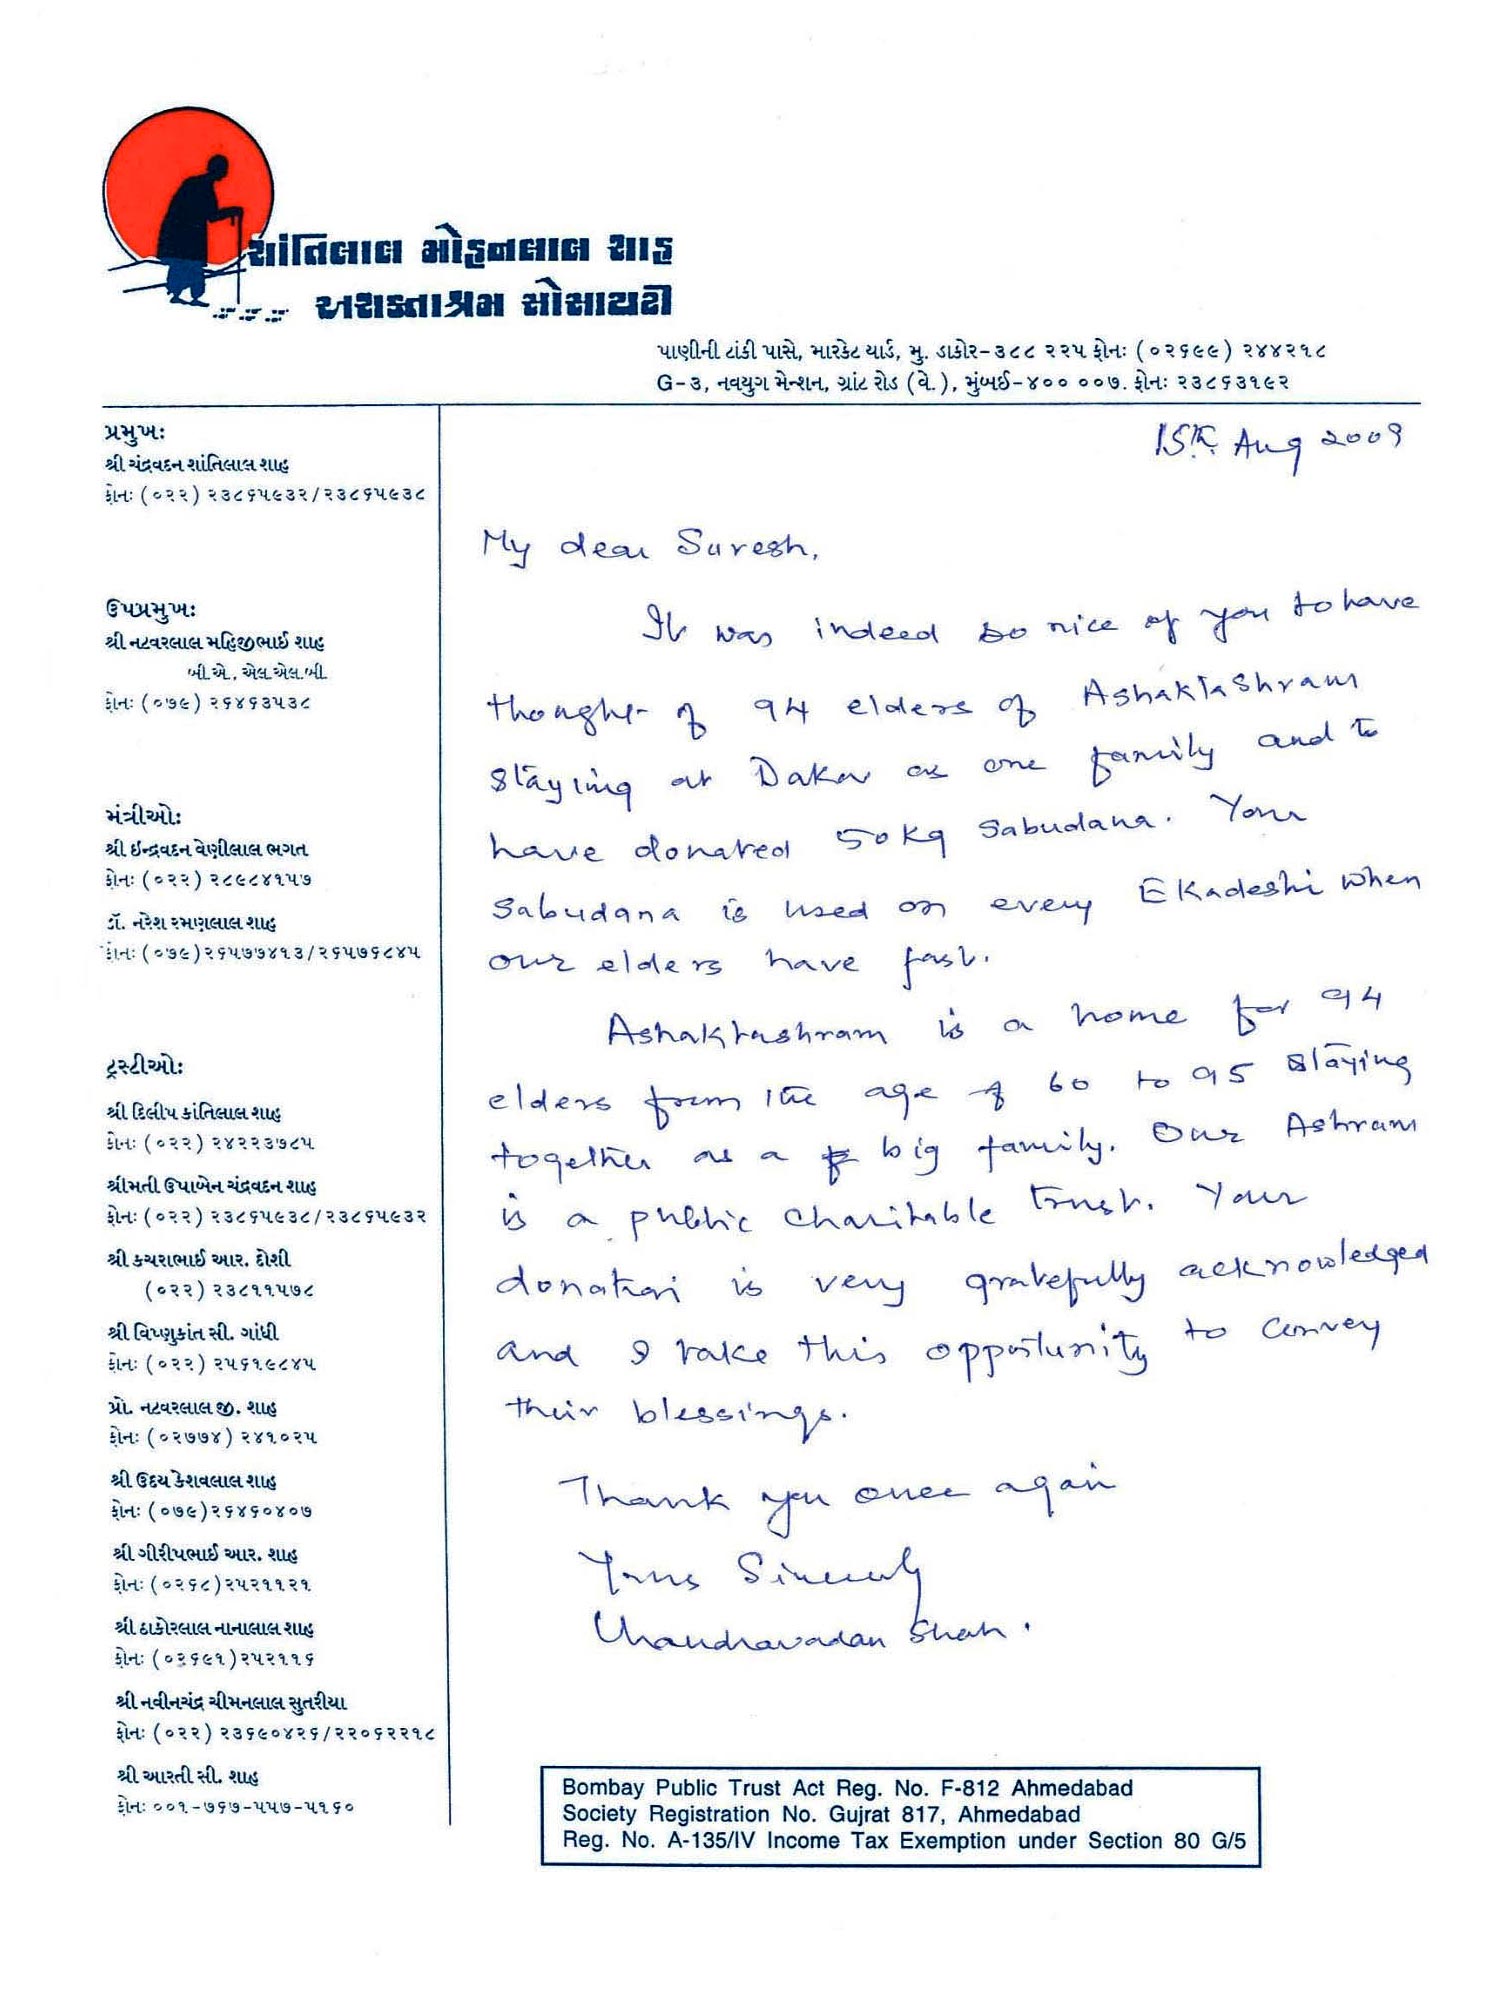 શાંતિલાલ મોહનલાલ શાહ
અશક્તાશ્રમ સોસાયટી
પાણીની ટાંકી પાસે, મારકેટ યાર્ડ, મુ. ડાકોર-૩૮૮ ૨૨૫ ફોનઃ (૦૨૬૯૯) ૨૪૪૨૧૮
G-૩, નવયુગ મેન્શન, ગ્રાંટ રોડ (વે.), મુંબઈ-૪૦૦ ૦૦૭. ફોનઃ ૨૩૮૬૩૧૯૨
પ્રમુખઃ
શ્રી ચંદ્રવદન શાંતિલાલ શાહ
ફોનઃ (૦૨૨) ૨૩૮૬૫૯૩૨/૨૩૮૬૫૯૩૮
ઉપપ્રમુખઃ
શ્રી નટવરલાલ મહિજીભાઈ શાહ
બી.એ., એલ.એલ.બી.
ફોનઃ (૦૭૯) ૨૬૪૬૩૫૩૮
મંત્રીઓઃ
શ્રી ઇન્દ્રવદન વેણીલાલ ભગત
ફોનઃ (૦૨૨) ૨૮૯૮૪૧૫૭
ડૉ. નરેશ રમણલાલ શાહ
ફોનઃ (૦૭૯)૨૬૫૭૭૪૧૩/૨૬૫૭૬૮૪૫
ટ્રસ્ટીઓઃ
શ્રી દિલીપ કાંતિલાલ શાહ
ફોનઃ (૦૨૨) ૨૪૨૨૩૭૮૫
શ્રીમતી ઉષાબેન ચંદ્રવદન શાહ
ફોનઃ (૦૨૨) ૨૩૮૬૫૯૩૮/૨૩૮૬૫૯૩૨
શ્રી કચરાભાઈ આર. દોશી
(૦૨૨) ૨૩૮૧૧૫૭૮
શ્રી વિષ્ણુકાંત સી. ગાંધી
ફોનઃ (૦૨૨) ૨૫૬૧૯૮૪૫
પ્રો. નટવરલાલ જી. શાહ
ફોનઃ (૦૨૭૭૪) ૨૪૧૦૨૫
શ્રી ઉદય કેશવલાલ શાહ
ફોનઃ (૦૭૯)૨૬૪૬૦૪૦૭
શ્રી ગીરીષભાઈ આર. શાહ
ફોનઃ (૦૨૬૮)૨૫૨૧૧૨૧
શ્રી ઠાકોરલાલ નાનાલાલ શાહ
ફોનઃ (૦૨૬૯૧)૨૫૨૧૧૬
શ્રી નવીનચંદ્ર ચીમનલાલ સુતરીયા
ફોનઃ (૦૨૨) ૨૩૬૯૦૪૨૬/૨૨૦૬૨૨૧૮
શ્રી આરતી સી. શાહ
ફોનઃ ૦૦૧-૭૬૭-૫૫૭-૫૧૬૦
15th Aug 2009
My dear Suresh,
It was indeed so nice of you to have
thought of 94 elders of Ashaktashram
staying at Dakor as one family and to
have donated 50 Kg Sabudana. Your
Sabudana is used on every Ekadeshi when
our elders have fast.
Ashaktashram is a home for 94
elders from the age of 60 to 95 staying
together as a big family. Our Ashram
is a public charitable trust. Your
donation is very gratefully acknowledged
and I take this opportunity to convey
their blessings.
Thank you once again
Yours Sincerely
Chandravadan Shah.
Bombay Public Trust Act Reg. No. F-812 Ahmedabad
Society Registration No. Gujrat 817, Ahmedabad
Reg. No. A-135/IV Income Tax Exemption under Section 80 G/5